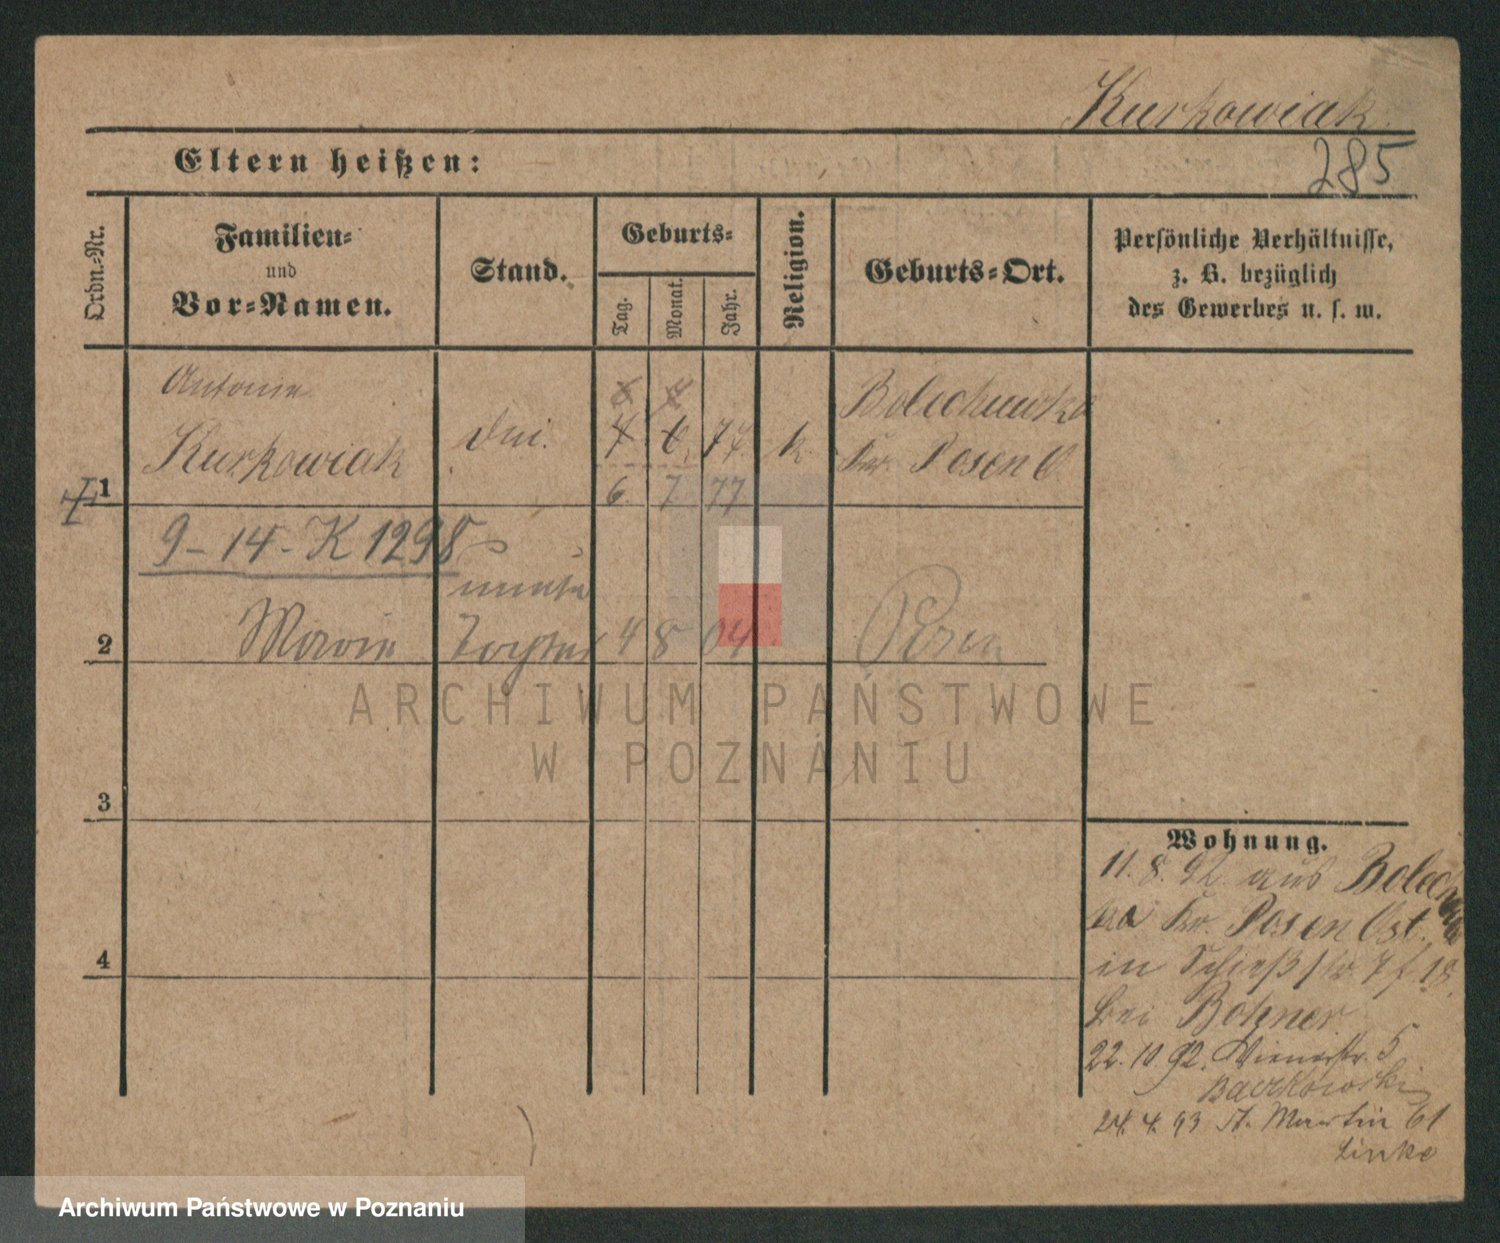 Kurkowiak
285
Eltern heißen:
Ordn.-Nr.
Familien-
und
Vor-Namen.
Stand.
Geburts-
Tag.
Monat.
Jahr.
Religion.
Geburts-Ort.
Persönliche Verhältnisse,
z. B. bezüglich
des Gewerbes u. s. w.
Antonie
Kurkowiak
6 7
7 6 77 k.
6. 7. 77
Bolechowko
Kr. Posen O
1
9-14-K 1298
2
Marie
Tochter
4 8 04
Posen
3
4
Wohnung.
11. 8. 92. aus Bolech
Kr. Posen Ost.
in Schießstr. 7
bei Bohner
22. 10 92. Wienerstr. 5
24. 4. 93 St. Martin 61
Linke
ARCHIWUM PAŃSTWOWE
W POZNANIU
Archiwum Państwowe w Poznaniu